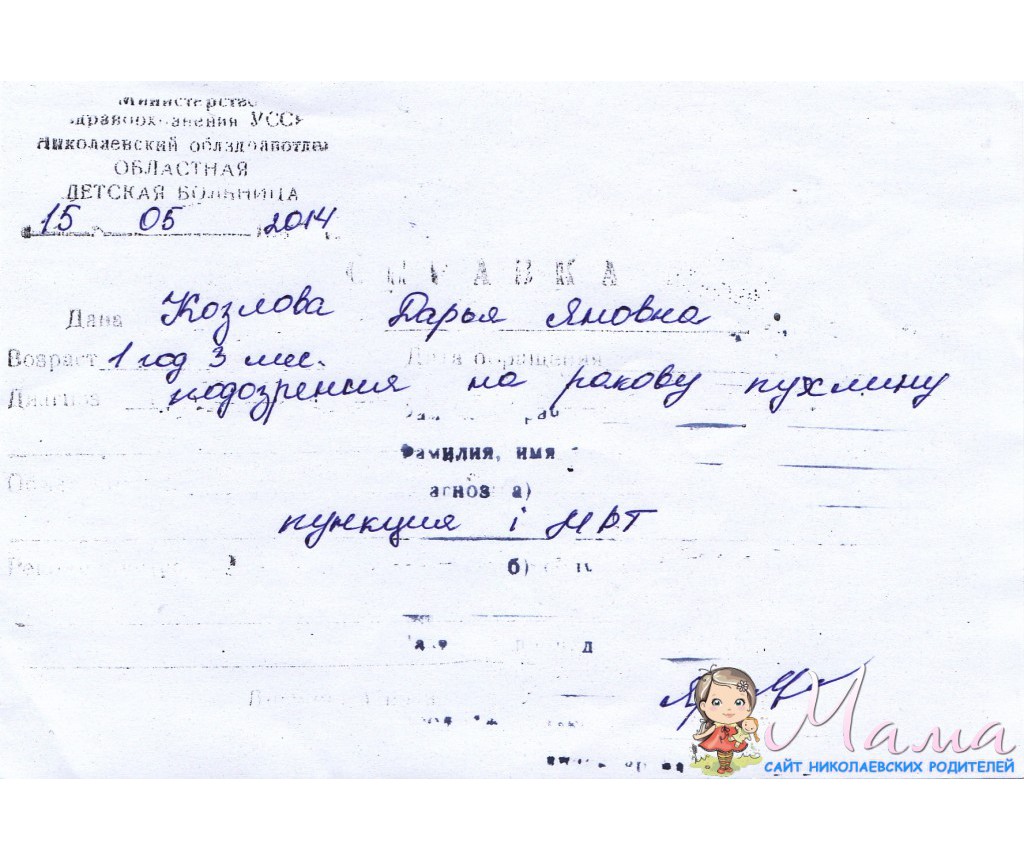 Министерство
здравоохранения УССР
Николаевский облздравотдел
ОБЛАСТНАЯ
ДЕТСКАЯ БОЛЬНИЦА
15 05 2014
Дана Козлова Дарья Яновна
Возраст 1 год 3 мес. Дата обращения
Диагноз подозрения на ракову пухлину
Фамилия, имя
агноз а)
пункция і МРТ
б)
Мама
САЙТ НИКОЛАЕВСКИХ РОДИТЕЛЕЙ